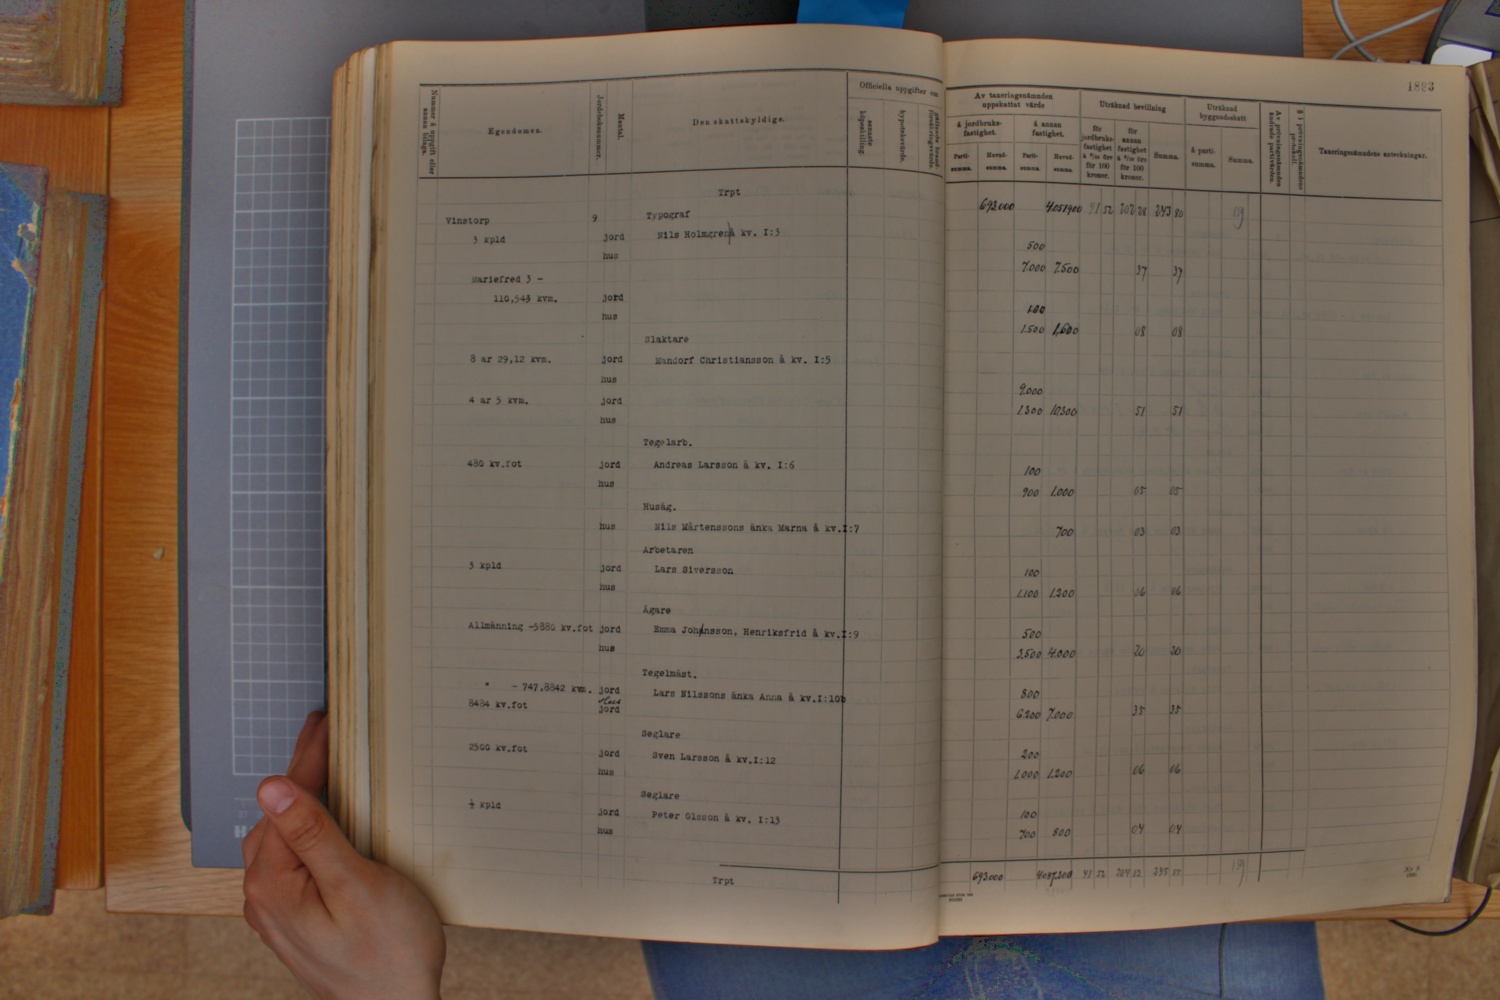 1893
Nummer å uppgift eller annan bilaga.
Egendomen.
Jordeboksnummer.
Mantal.
Den skattskyldige.
Officiella uppgifter om
senaste köpeskilling.
hypoteksvärde.
Av taxeringsnämnden uppskattat värde
å jordbruksfastighet.
å annan fastighet.
Partisumma.
Huvudsumma.
Partisumma.
Huvudsumma.
Uträknad bevillning
för jordbruksfastighet
för annan fastighet
för 100 kronor.
för 100 kronor.
Summa.
Uträknad byggnadsskatt
å partisumma.
Summa.
Av prövningsnämnden ändrade partivärden.
Taxeringsnämndens anteckningar.
Trpt 692.000 4.057.900 41 52 202 28 243 80
Vinstorp 9 Typograf
3 kpld jord Nils Holmgren å kv. I:3 500
hus 7.000 7.500 37 37
Mariefred 3 -
110,543 kvm. jord 100
hus 1.500 1.600 08 08
Slaktare
8 ar 29,12 kvm. jord Mandorf Christiansson å kv. I:5
hus 9.000
4 ar 5 kvm. jord 1.300 10.300 51 51
hus
Tegelarb.
480 kv.fot jord Andreas Larsson å kv. I:6 100
hus 900 1.000 05 05
Husäg.
hus Nils Mårtenssons änka Marna å kv.I:7 700 03 03
Arbetaren
3 kpld jord Lars Siversson 100
hus 1.100 1.200 06 06
Ägare
Allmänning -5880 kv.fot jord Emma Johansson, Henriksfrid å kv.I:9 500
hus 3.500 4.000 20 20
Tegelmäst.
" - 747,8842 kvm. jord Lars Nilssons änka Anna å kv.I:10b 800
Hus
8484 kv.fot jord 6.200 7.000 35 35
Seglare
2500 kv.fot jord Sven Larsson å kv.I:12 200
hus 1.000 1.200 06 06
Seglare
½ kpld jord Peter Olsson å kv. I:13 100
hus 700 800 04 04
Trpt 692.000 41 52